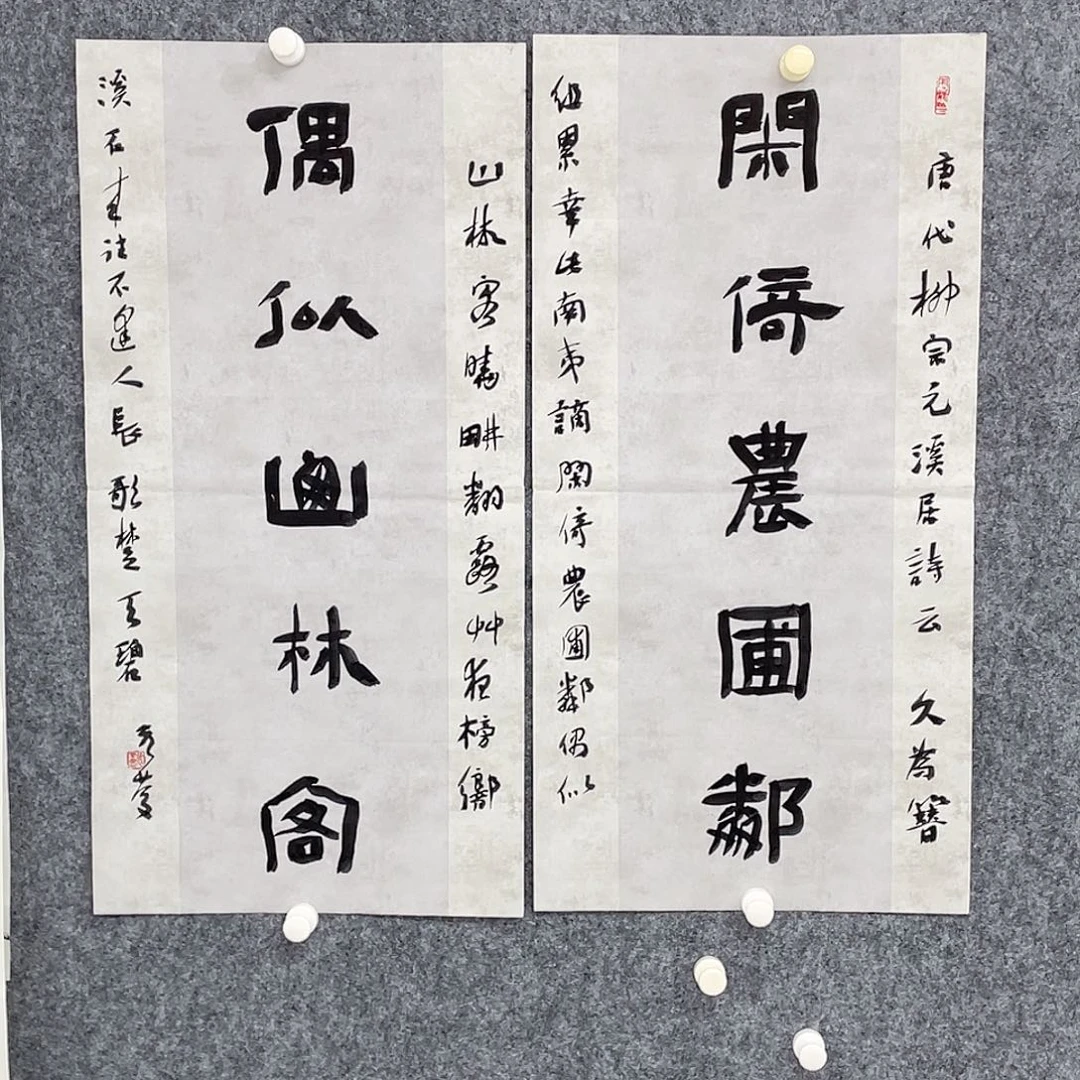 唐代柳宗元溪居詩云 久為簪
閑倚農圃鄰
組累幸此南夷謫閑倚農圃鄰偶似
山林客曉畊翻露艸夜榜響
偶似山林客
溪石来往不逢人長歌楚天碧